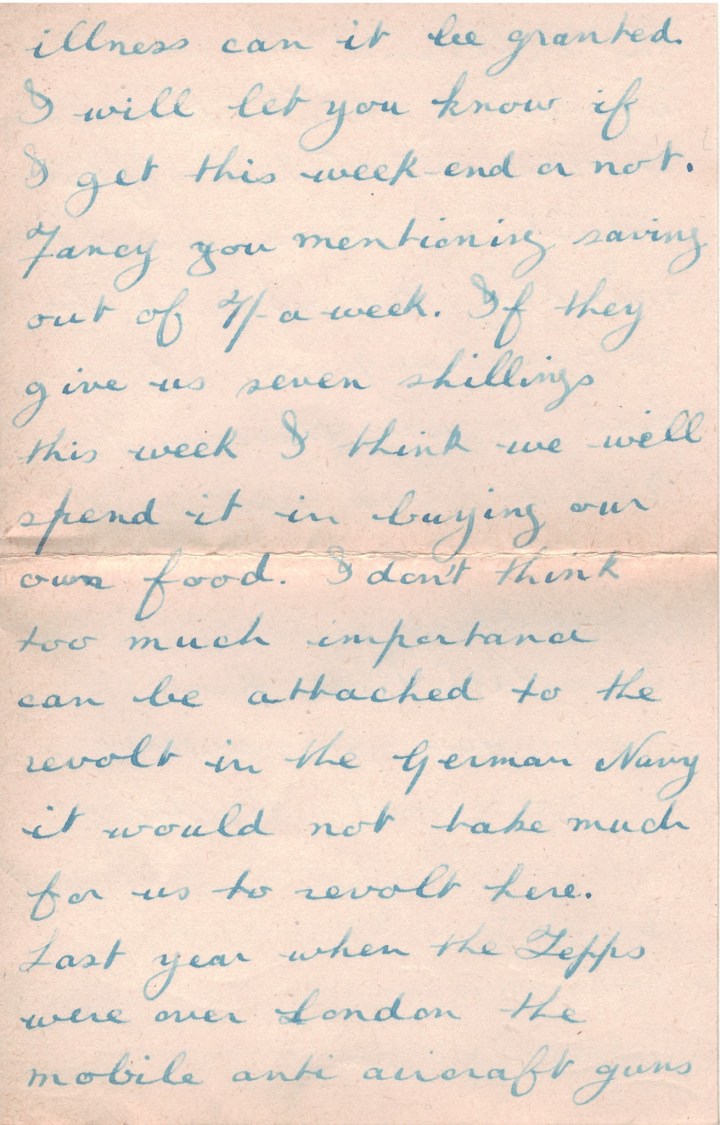 illness can it be granted.
I will let you know if
I get this week-end or not.
Fancy you mentioning saving
out of 7/- a week. If they
give us seven shillings
this week I think we will
spend it in buying our
own food. I don't think
too much importance
can be attached to the
revolt in the German Navy
it would not take much
for us to revolt here.
Last year when the Zepps
were over London the
mobile anti aircraft guns